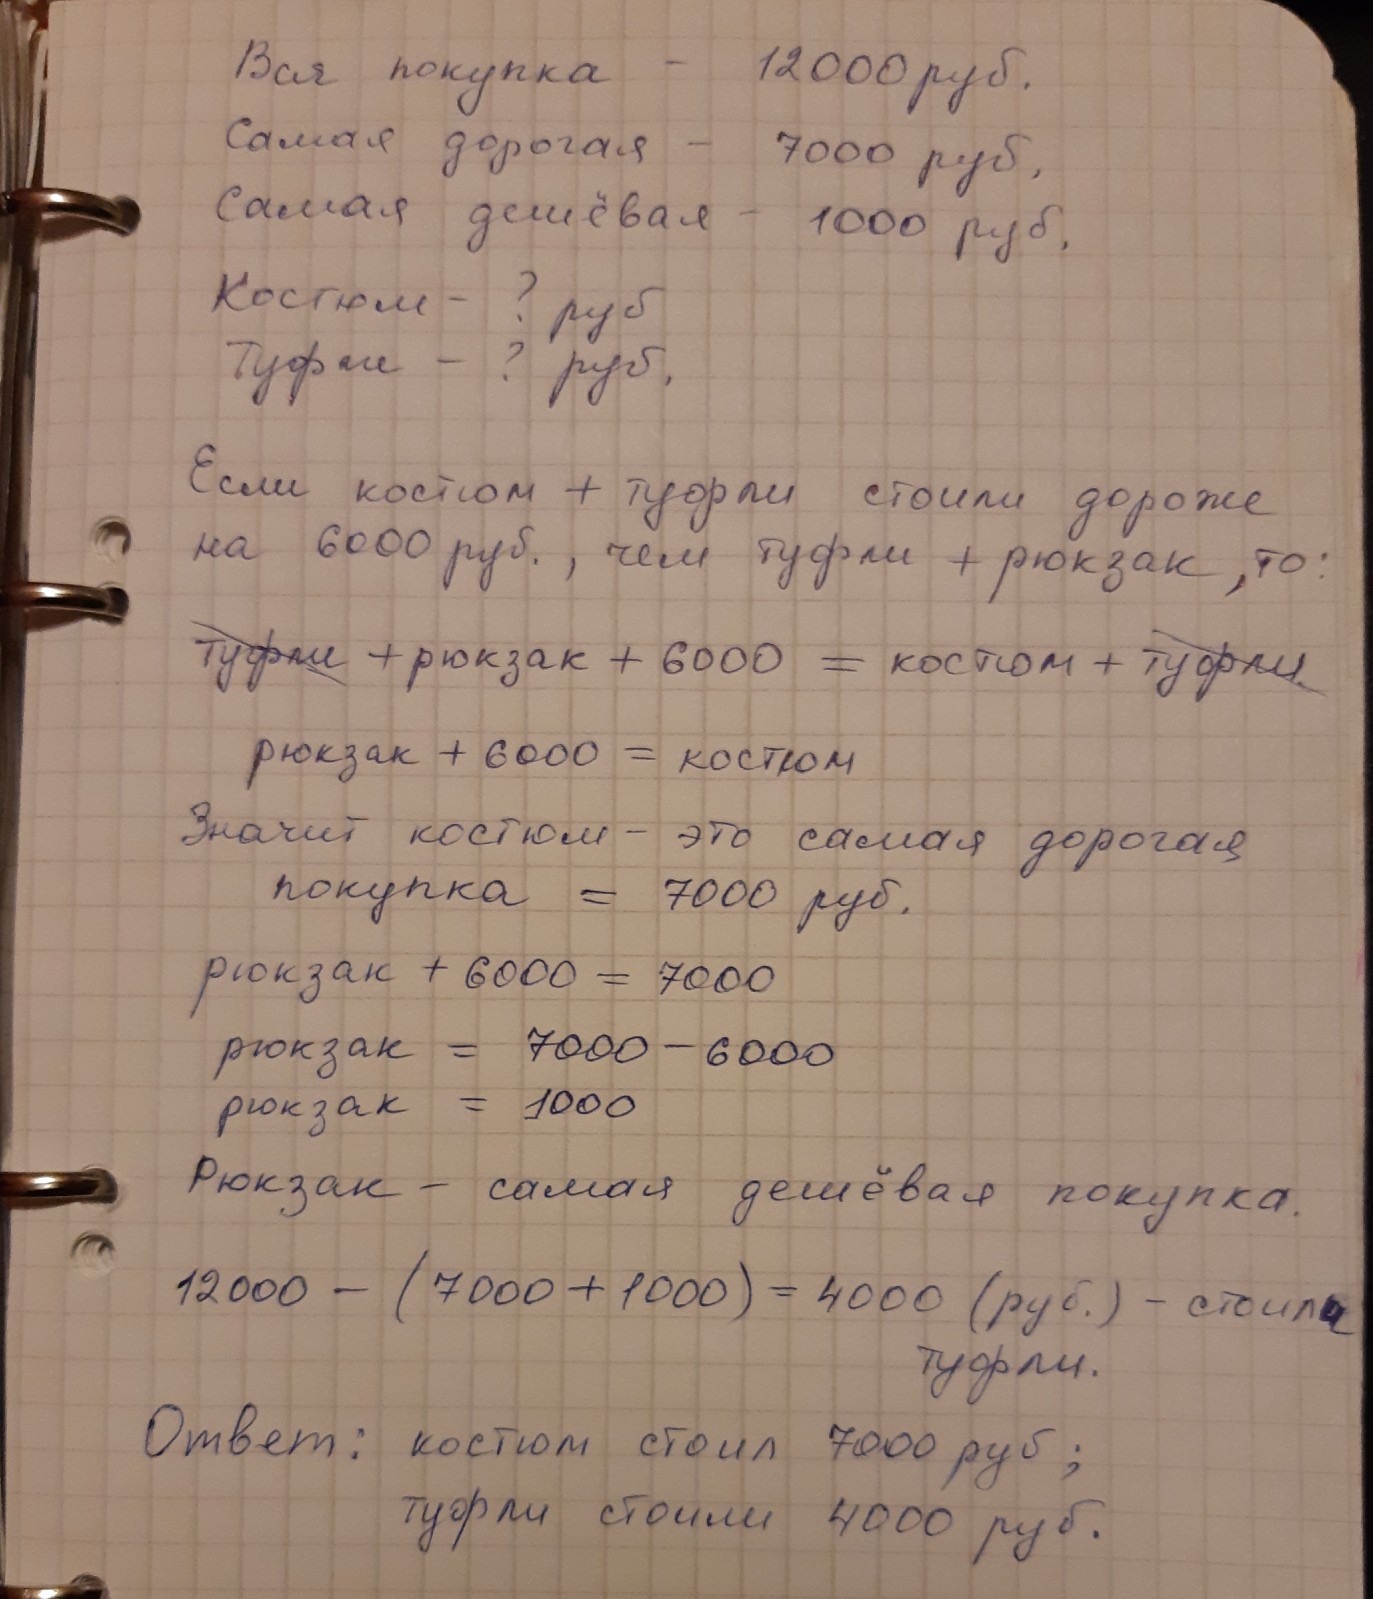 Вся покупка - 12000 руб.
Самая дорогая - 7000 руб.
Самая дешёвая - 1000 руб.
Костюм - ? руб
Туфли - ? руб.
Если костюм + туфли стоили дороже
на 6000 руб., чем туфли + рюкзак, то:
туфли + рюкзак + 6000 = костюм + туфли
рюкзак + 6000 = костюм
Значит костюм - это самая дорогая
покупка = 7000 руб.
рюкзак + 6000 = 7000
рюкзак = 7000 - 6000
рюкзак = 1000
Рюкзак - самая дешёвая покупка.
12000 - (7000 + 1000) = 4000 (руб.) - стоили
туфли.
Ответ: костюм стоил 7000 руб;
туфли стоили 4000 руб.